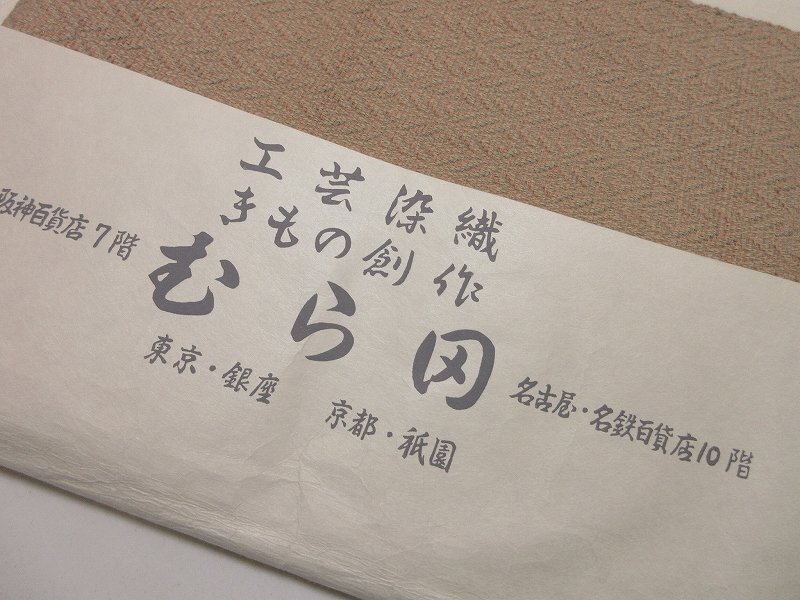 工芸染織
きもの創作
むら冈
阪神百貨店7階
東京・銀座
京都・祇園
名古屋・名鉄百貨店10階